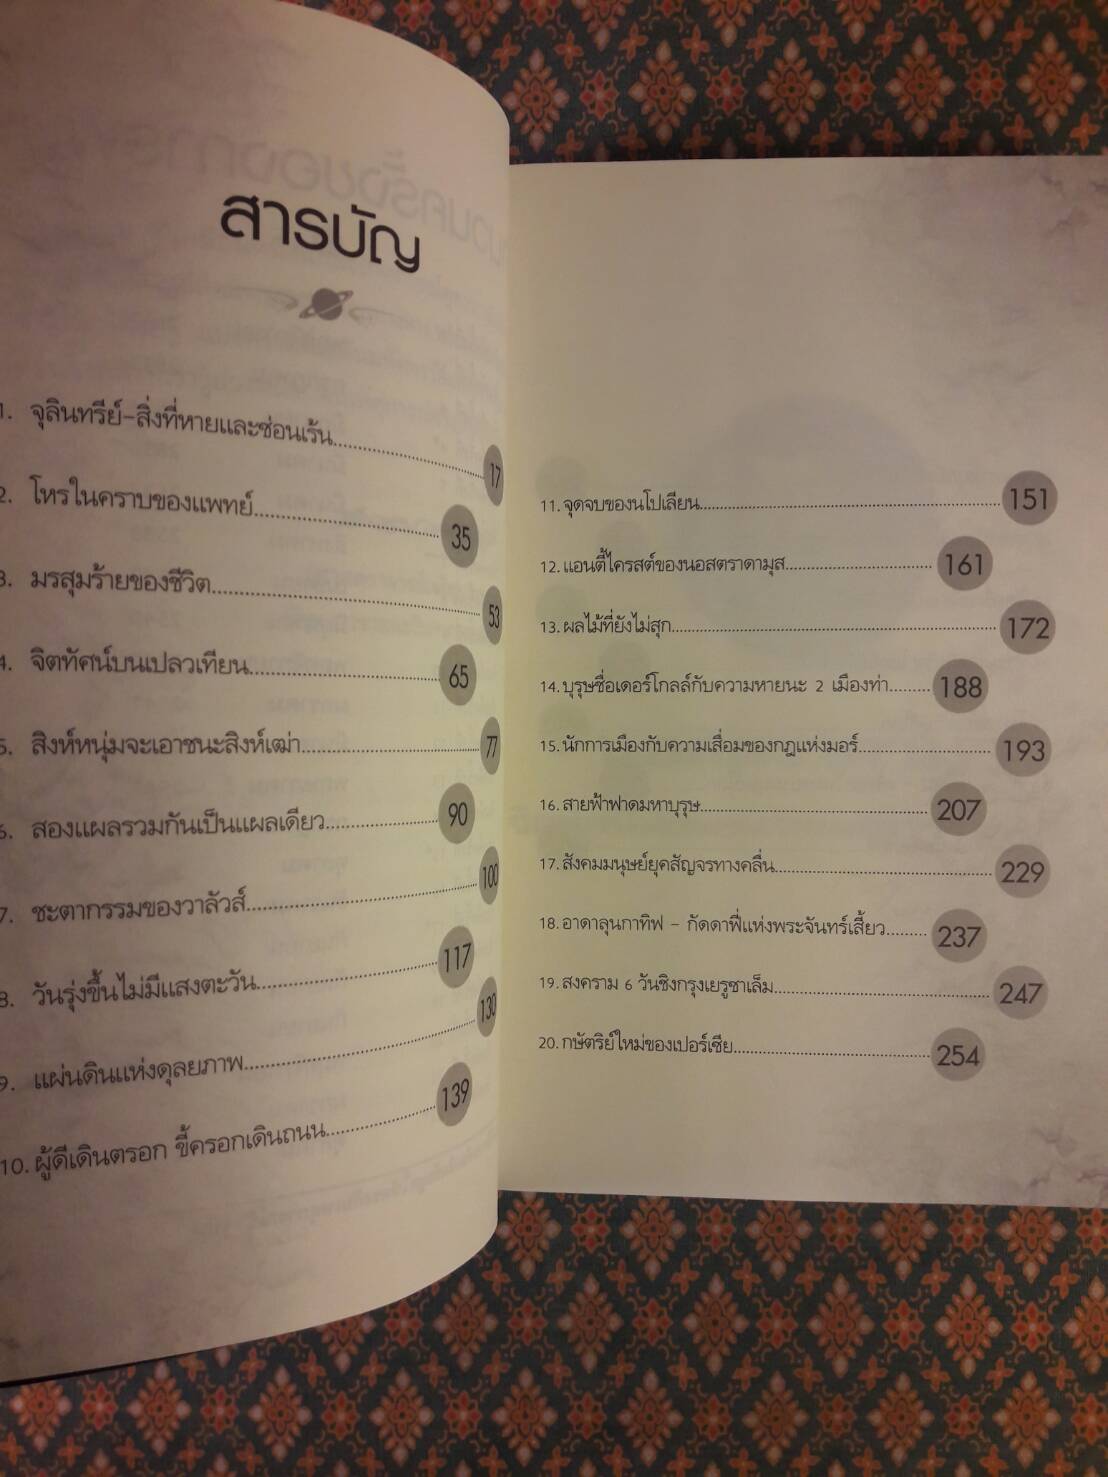 สารบัญ
1. จุลินทรีย์-สิ่งที่หายและซ่อนเร้น 17
2. โหรในคราบของแพทย์ 35
3. มรสุมร้ายของชีวิต 53
4. จิตทัศน์บนเปลวเทียน 65
5. สิงห์หนุ่มจะเอาชนะสิงห์เฒ่า 77
6. สองแผลรวมกันเป็นแผลเดียว 90
7. ชะตากรรมของวาลัวส์ 100
8. วันรุ่งขึ้นไม่มีแสงตะวัน 117
9. แผ่นดินแห่งดุลยภาพ 130
10. ผู้ดีเดินตรอก ขี้ครอกเดินถนน 139
11. จุดจบของนโปเลียน 151
12. แอนตี้ไครสต์ของนอสตราดามุส 161
13. ผลไม้ที่ยังไม่สุก 172
14. บุรุษชื่อเดอร์โกลล์กับความหายนะ 2 เมืองท่า 188
15. นักการเมืองกับความเสื่อมของกฎแห่งมอร์ 193
16. สายฟ้าฟาดมหาบุรุษ 207
17. สังคมมนุษย์ยุคสัญจรทางคลื่น 229
18. อาดาลุนกาทิฟ - กัดดาฟี่แห่งพระจันทร์เสี้ยว 237
19. สงคราม 6 วันชิงกรุงเยรูซาเล็ม 247
20. กษัตริย์ใหม่ของเปอร์เซีย 254